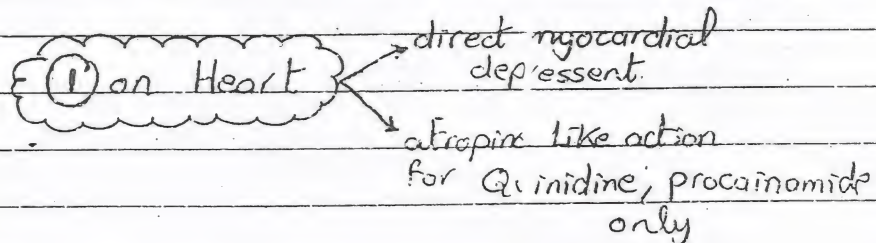 ① on Heart
direct myocardial
depressent.
atropine Like action
for Quinidine, procainamide
only